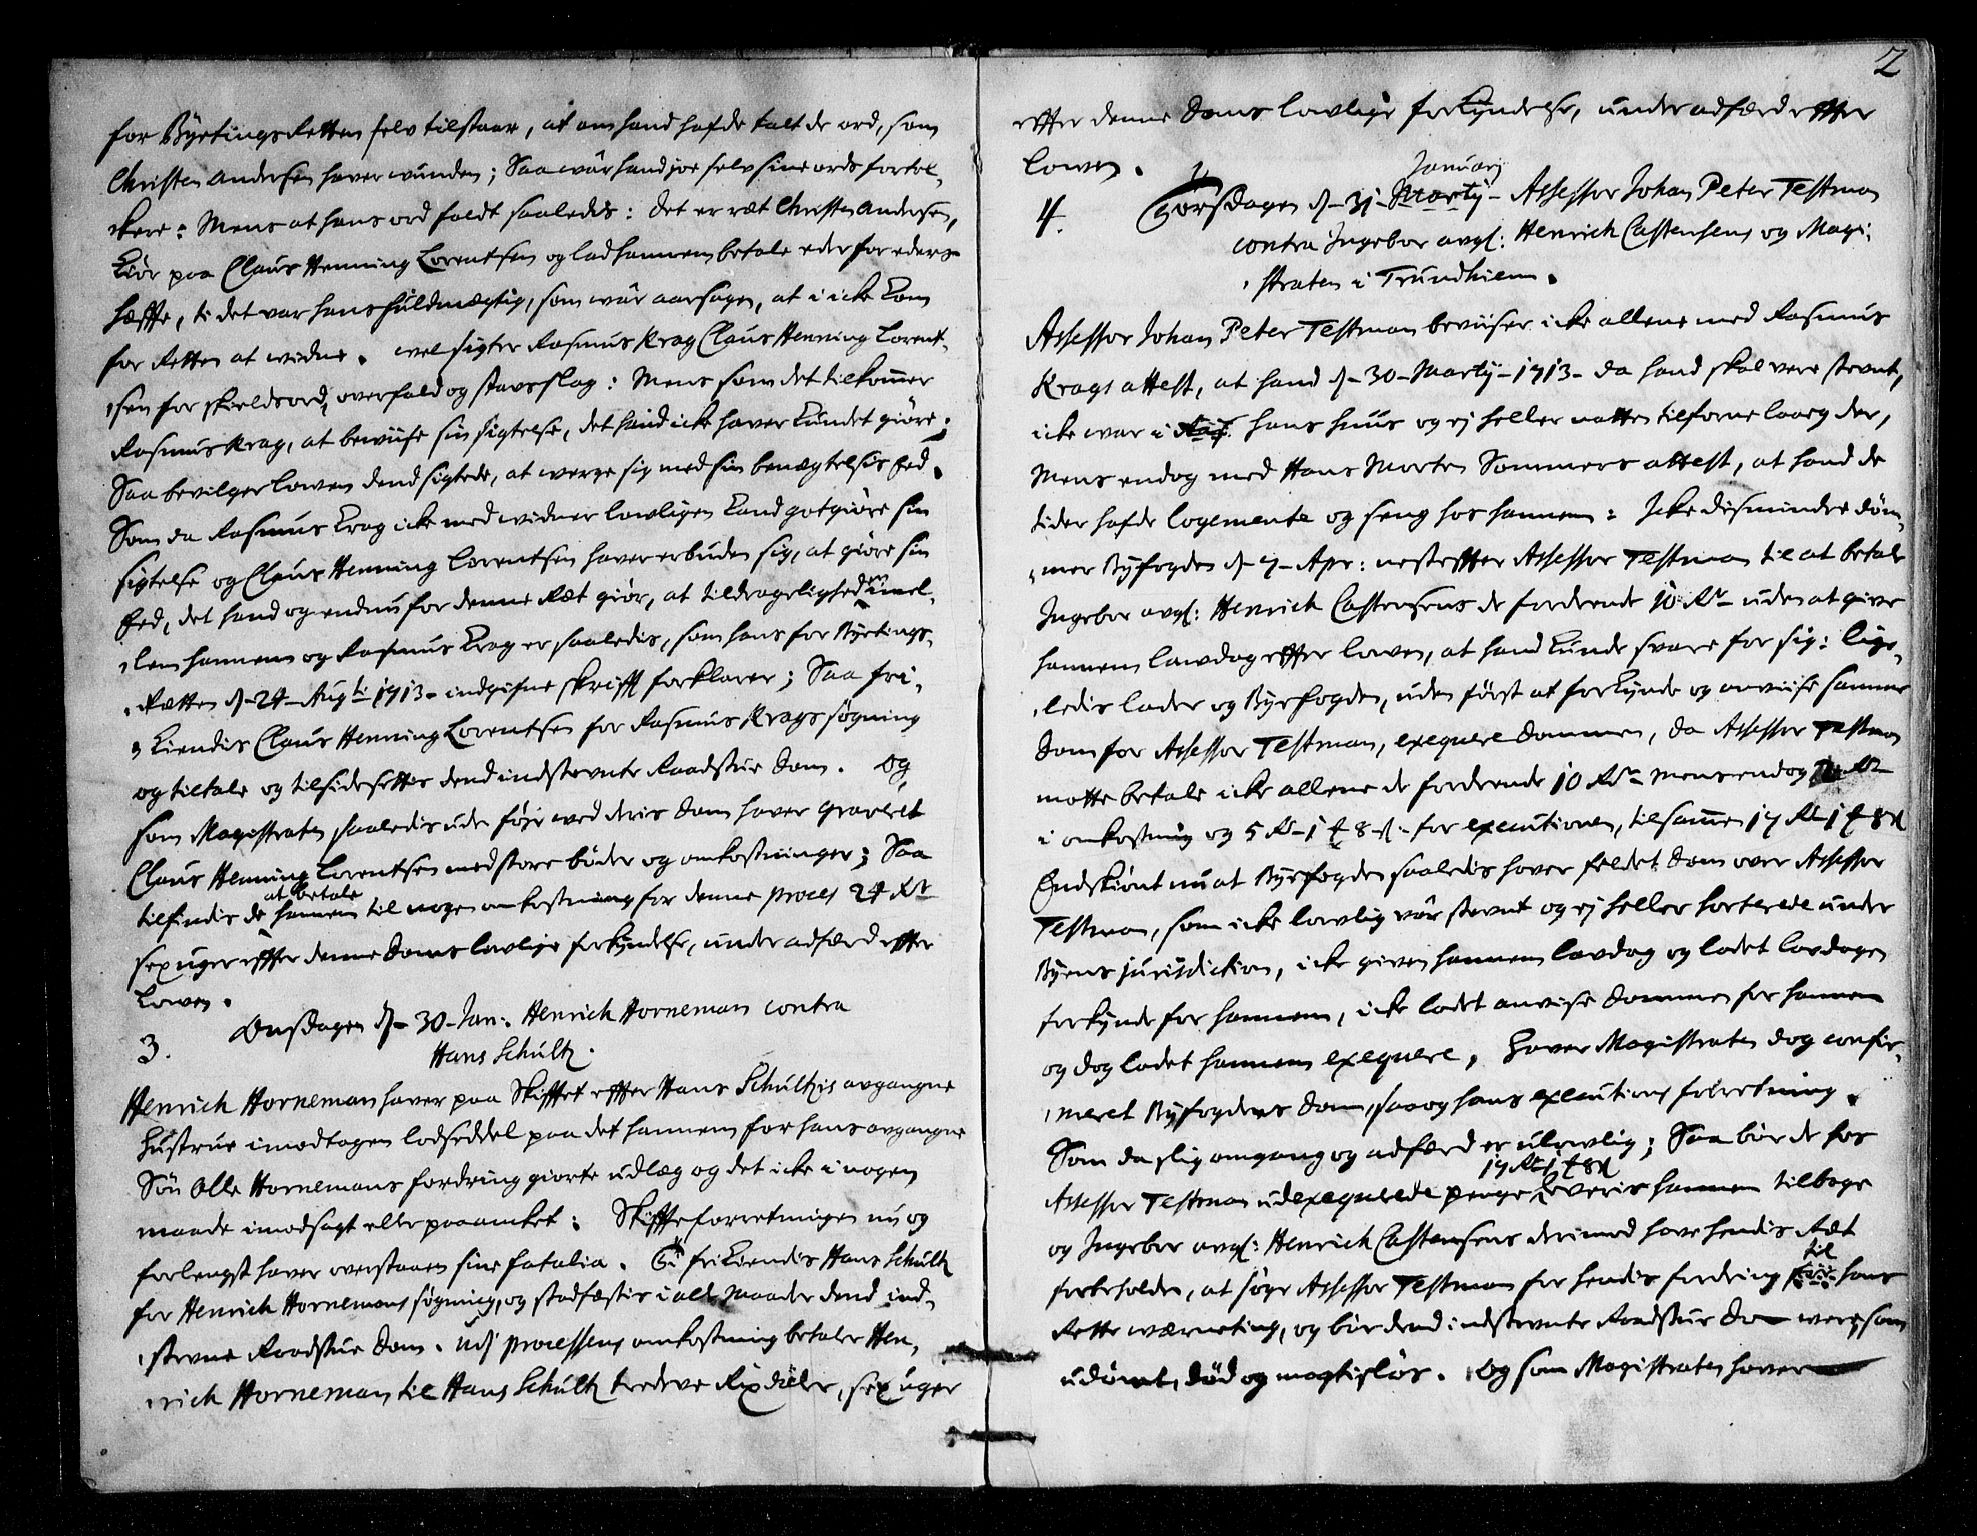 for Byetings Retten selv tilstaar, at om hand hafde talt de ord, som
Christen Andersen haver wunden; Saa wår hand joe selv sine ords fortol-
kere: Mens at hans ord faldt saaledis: det er ræt Christen Andersen,
kiör paa Claus Henning Lorentsen og lad hannem betale eder for eders
hæffte, ti det var hans fuldmægtig, som wår aarsagen, at i icke kom
for Retten at widne. wel sigter Rasmus Krag Claus Henning Lorent-
sen for skieldsord, overfald og stavsslag: Mens som det tilkommer
Rasmus Krag, at bewiise sin sigtelse, det hand icke haver kundet giöre;
Saa bevilger lowen dend sigtede, at werge sig med sin benægtelsis Eed.
Som da Rasmus Krag icke med widner lowligen kand gotgiöre sin
sigtelse og Claus Henning Lorentsen haver erbuden sig, at giöre sin
Eed, det hand og endnu for denne Ræt giör, at tildrageligheden imel-
lem hannem og Rasmus Krag er saaledis, som hans for Byetings
Rætten d- 24- Augti 1713- indgifne skrifft forklarer; Saa fri-
kiendis Claus Henning Lorentsen for Rasmus Krags søgning
og tiltale og tilsidesettis dend indstevnte Raadstue dom. Og
som Magistraten saaledis uden föje wed deris dom haver graveret
Claus Henning Lorentsen med store bøder og omkostninger; Saa
tilfindis de at betale hannem til nogen omkostning for denne proces 24 Rdr
sex uger effter denne doms lovlige forkyndelse, under adfærd effter
Lowen.
3. Onsdagen d- 30- Jan: Henrich Horneman contra
Hans Schultz.
Henrich Horneman haver paa Skifftet effter Hans Schultzis avgangne
Hustrue imodtagen lodseddel paa det hannem for hans avgangne
Sön Olle Hornemans fordring giorte udlæg og det icke i nogen
maade imodsagt eller paaancket: Skiffteforretningen nu og
forlengst haver overstaaen sine fatalia. Ti frikiendis Hans Schultz
for Henrich Hornemans søgning, og stadfæstis i alle maader dend ind-
stevne Raadstue dom. Udj processens omkostning betaler Hen-
rich Horneman til Hans Schultz tredeve Rixdaler, sex uger
2
effter denne doms lowlige forkyndelse, under adfærd effter
lowen.
4. Torsdagen d- 31- Januarj Marty- Assessor Johan Peter Testman
contra Ingebor avgl: Henrich Castensens og Magi-
straten i Trundhiem.
Assessor Johan Peter Testman beviiser icke allene med Rasmus
Krags attest, at hand d- 30- Marty- 1713- da hand skal vere stevnt,
icke war i hans huus og ej heller natten tilforne laaeg der,
Mens endog med Hans Morten Sommers attest, at hand de
tider hafde logemente og seng hos hannem: Icke dismindre döm-
mer Byfogden d- 7- Apr: nesteffter Assessor Testman til at betale
Ingebor avgl: Henrich Castensens de fordrende 10 Rdr uden at give
hannem lawdag effter lowen, at hand kunde svare for sig: lige-
ledis lader og Byefogden, uden först at forkynde og anviise samme
dom for Assessor Testman, exequere dommen, da Assessor Testman
motte betale icke allene de fordrende 10 Rdr Mens endog Rdr
i omkostning og 5 Rd- 1 ₰ 8 s- for executionen, tilsammen 17 Rd 1 ₰ 8 s
Endskiönt nu at Byefogden saaledis haver feldet dom over Assessor
Testman, som icke lowlig vår stevnt og ej heller sorterede under
Byens jurisdiction, icke given hannem lavdag og ladet lavdagen
forkynde for hannem, icke ladet anvise dommen for hannem
og dog ladet hannem exequere, haver Magistraten dog confir-
meret Byfogdens dom, saa og hans executions forretning.
Som da slig omgang og adfærd er ulowlig; Saa bör de fra
Assessor Testman udexequerede penge 17 Rd 1 ₰ 8 s leveris hannem tilbage
og Ingebor avgl: Henrich Castensens derimod have hendis Ræt
forbeholden, at søge Assessor Testman for hendis fordring til hans
Rette wærneting, og bör dend indstevnte Raadstue dom were som
udömt, död og magtislös. Og som Magistraten haver